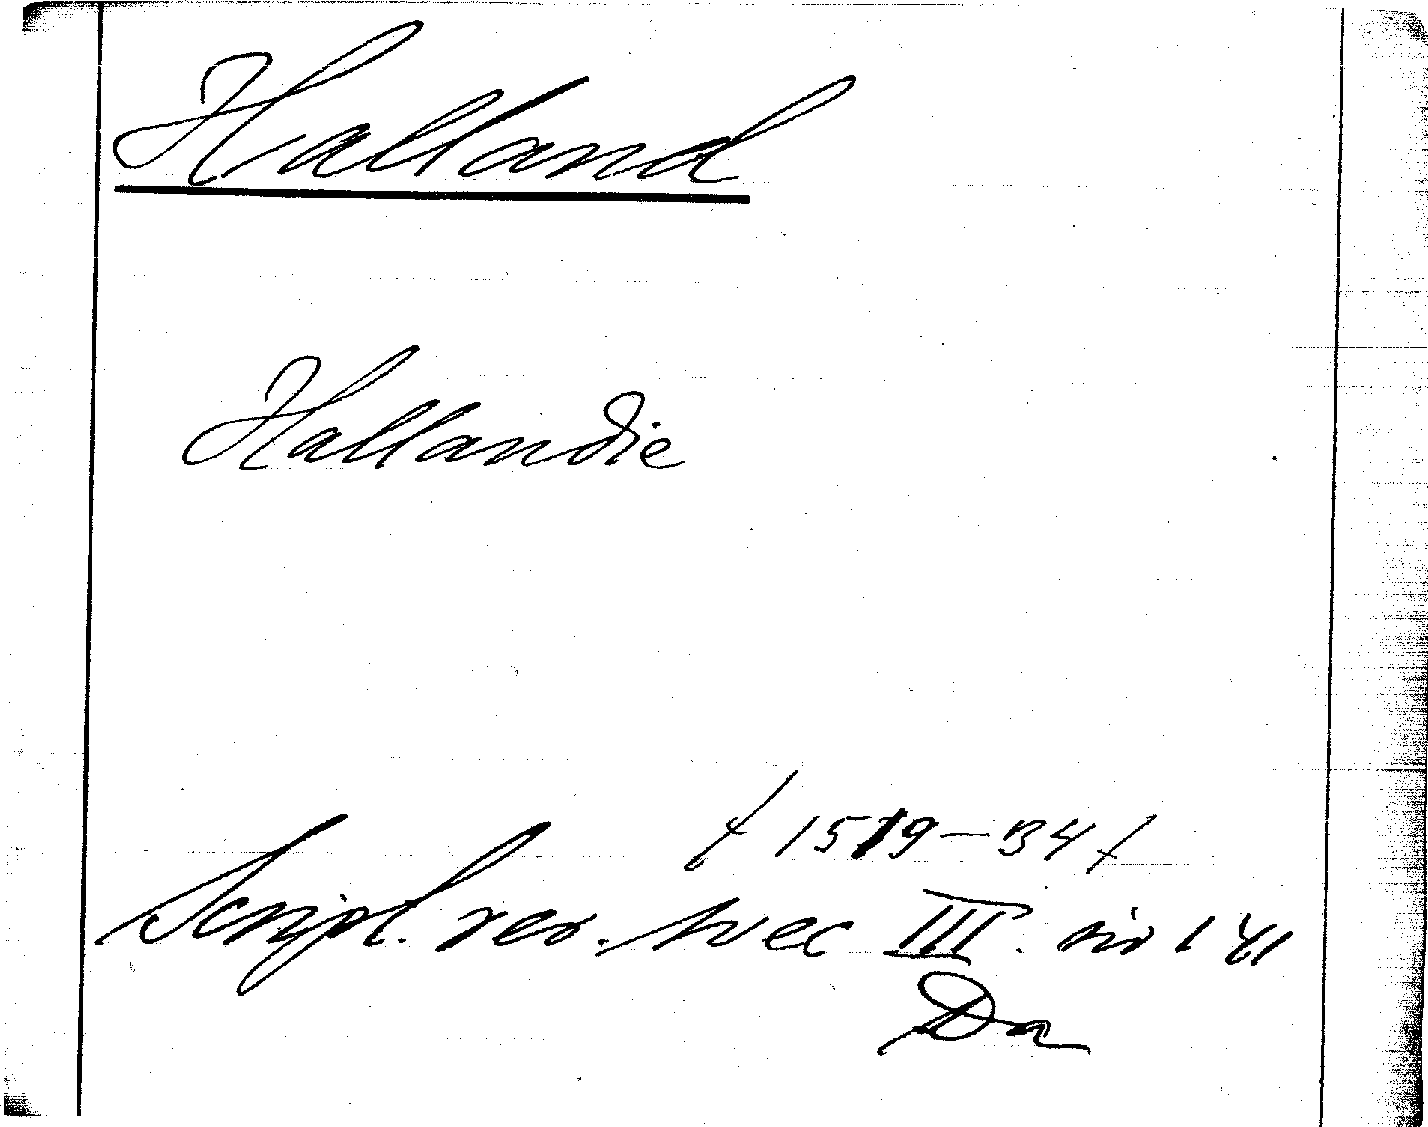 Halland
Hallandie
/1519-34/
Script. rer. svec III. sid 1
Da